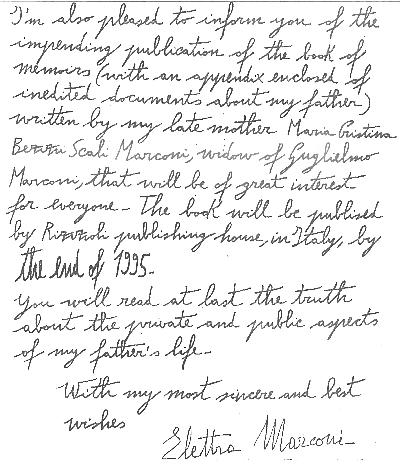 I'm also pleased to inform you of the
impending publication of the book of
memoirs (with an appendix enclosed of
inedited documents about my father)
written by my late mother Maria Cristina
Bezzi Scali Marconi, widow of Guglielmo
Marconi, that will be of great interest
for everyone - The book will be publised
by Rizzoli publishing house, in Italy, by
the end of 1995 -
You will read at last the truth
about the private and public aspects
of my father's life -
With my most sincere and best
wishes
Elettra Marconi -